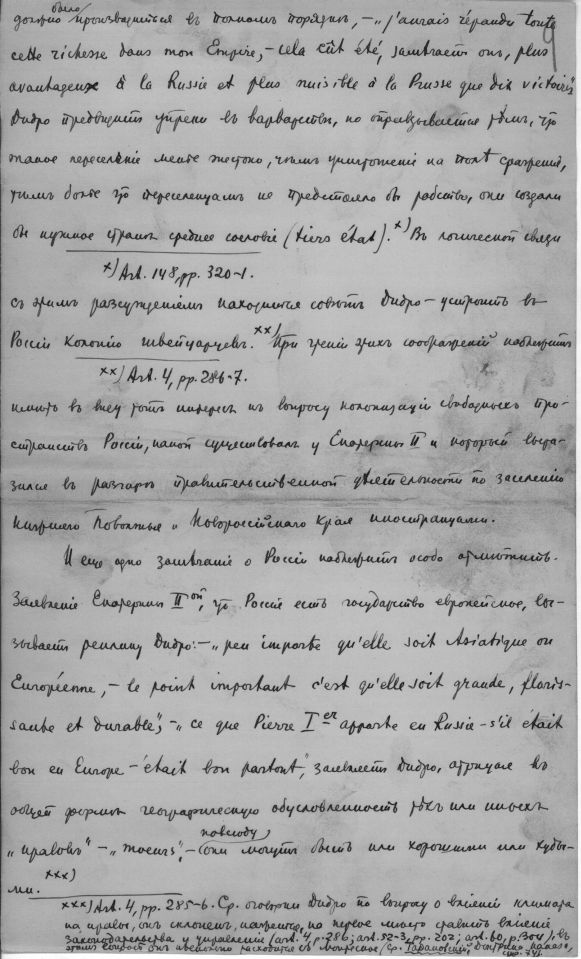 было
должно производиться въ полномъ порядкѣ, – „j'aurais répandu toute
cette richesse dans mon Empire, – cela eût été, замѣчаетъ онъ, plus
avantageux à la Russie et plus nuisible à la Prusse que dix victoires"
Дидро предвидитъ упреки въ варварствѣ, но оправдывается тѣмъ, что
такое переселеніе менѣе жестоко, чѣмъ уничтоженіе на полѣ сраженія,
тѣмъ болѣе что переселенцамъ не предстояло бы рабство, они создали
бы нужное странѣ среднее сословіе (tiers état).x) Въ логической связи
x) Art. 148, pp. 320-1.
съ этимъ разсужденіемъ находится совѣтъ Дидро – устроить въ
Россіи колонію швейцарцевъ.xx) При чтеніи этихъ соображеній надлежитъ
xx) Art. 4, pp. 286-7.
имѣть въ виду тотъ интересъ къ вопросу колонизаціи свободныхъ про-
странствъ Россіи, какой существовалъ у Екатерины II и который выра-
зился въ разгарѣ правительственной дѣятельности по заселенію
Нижняго Поволжья и Новороссійскаго Края иностранцами.
И еще одно замѣчаніе о Россіи надлежитъ особо отмѣтить.
Заявленіе Екатерины IIой, что Россія есть государство европейское, вы-
зываетъ реплику Дидро: – „peu importe qu'elle soit Asiatique ou
Européenne, – le point important c'est qu'elle soit grande, floris-
sante et durable", – „ce que Pierre Ier apporte en Russie – s'il était
bon en Europe – était bon partout", заявляетъ Дидро, отрицая въ
общей формѣ географическую обусловленность тѣхъ или иныхъ
повсюду
„нравовъ" – „moeurs", – (они могутъ быть или хорошими или худы-
ми.xxx)
xxx) Art. 4, pp. 285-6. Ср. оговорки Дидро по вопросу о вліяніи климата
на нравы, онъ склоненъ, напротивъ, на первое мѣсто ставить вліяніе
законодательства и управленія (art. 4, p. 286; art. 52-3, pp. 202; art. 60, p. 304); въ
этомъ вопросѣ онъ расходится съ Монтескье, ср.